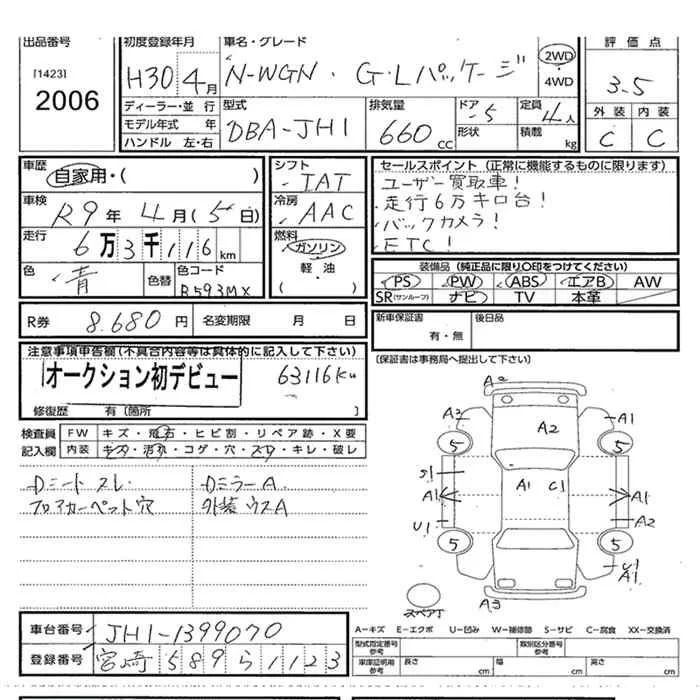 出品番号
[1423]
2006
初度登録年月
H30年 4月
車名・グレード
N-WGN・G・Lパッケージ
2WD
4WD
評価点
3.5
外装 内装
C C
ディーラー・並行
モデル年式 年
ハンドル 左・右
型式
DBA-JH1
排気量
660cc
ドア 5
形状
定員 4人
積載 kg
車歴
自家用・( )
車検
R9年 4月(5日)
走行
6万3千116km
色
青
色替
色コード
R593MX
シフト
IAT
冷房
AAC
燃料
ガソリン
軽・油
( )
セールスポイント(正常に機能するものに限ります)
ユーザー買取車!
走行6万キロ台!
バックカメラ!
ETC!
装備品(純正品に限り○印をつけてください)
PS PW ABS エアB AW
SR(サンルーフ) ナビ TV 本革
R券 8.680円 名変期限 月 日
新車保証書 後日品
有・無
(保証書は事務局へ提出して下さい)
注意事項申告欄(不具合内容等は具体的に記入して下さい)
オークション初デビュー
63116Km
修復歴 有〔箇所 〕
検査員 FW キズ・飛石・ヒビ割・リペア跡・X要
記入欄 内装 キズ・汚れ・コゲ・穴・スレ・キレ・破レ
Dシートスレ DミラーA
フロアカーペット穴 外装ウスA
A2
A3 A1
A2
5 5
S1
A1 A1 C1 A1
U1 A2
5 5
U1
A1
スペアT
A3
A-キズ E-エクボ U-凹み W-補修跡 S-サビ C-腐食 XX-交換済
車台番号 JH1-1399070
登録番号 宮崎 589 ら 1123
型式指定番号
参考
類別区分番号
参考
車庫証明用
参考
長さ cm 幅 cm 高さ cm